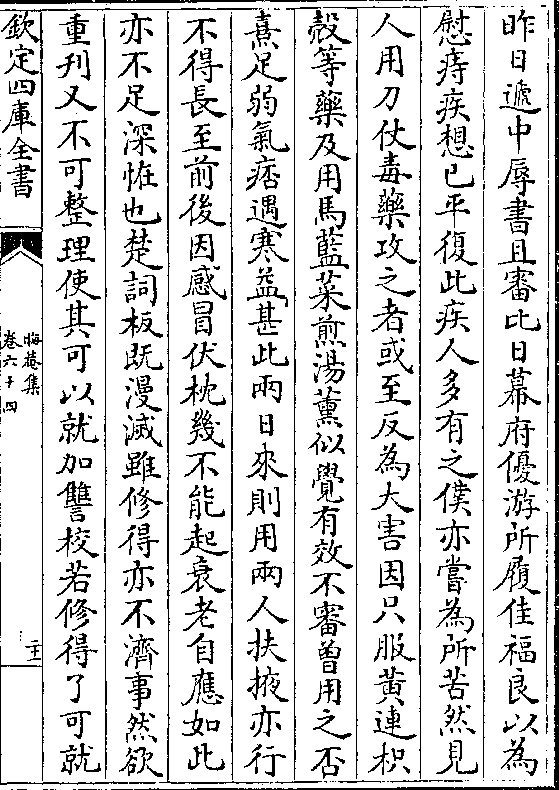 昨日遞中辱書且審比日幕府優游所履佳福良以為
慰痔疾想已平復此疾人多有之僕亦嘗為所苦然見
人用刀仗毒藥攻之者或至反為大害因只服黄連枳
殻等藥及用馬藍菜煎湯薰似覺有效不審曽用之否
熹足弱氣痞遇寒益甚此兩日來則用兩人扶掖亦行
不得長至前後因感冒伏枕幾不能起衰老自應如此
亦不足深恠也楚詞板既漫滅雖修得亦不濟事然欲
重刋又不可整理使其可以就加讐校若修得了可就
欽定四庫全書
晦菴集
卷六十四